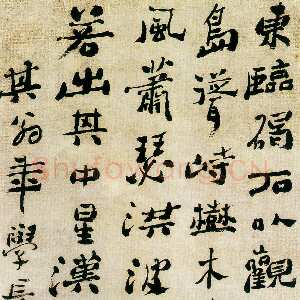 東臨碣石以觀
島峙樹木
風蕭瑟洪波
若出其中星漢
其翁年學長